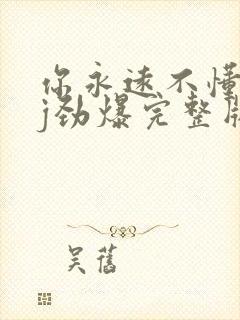 你永远不懂
j劲爆完整版
吴旧